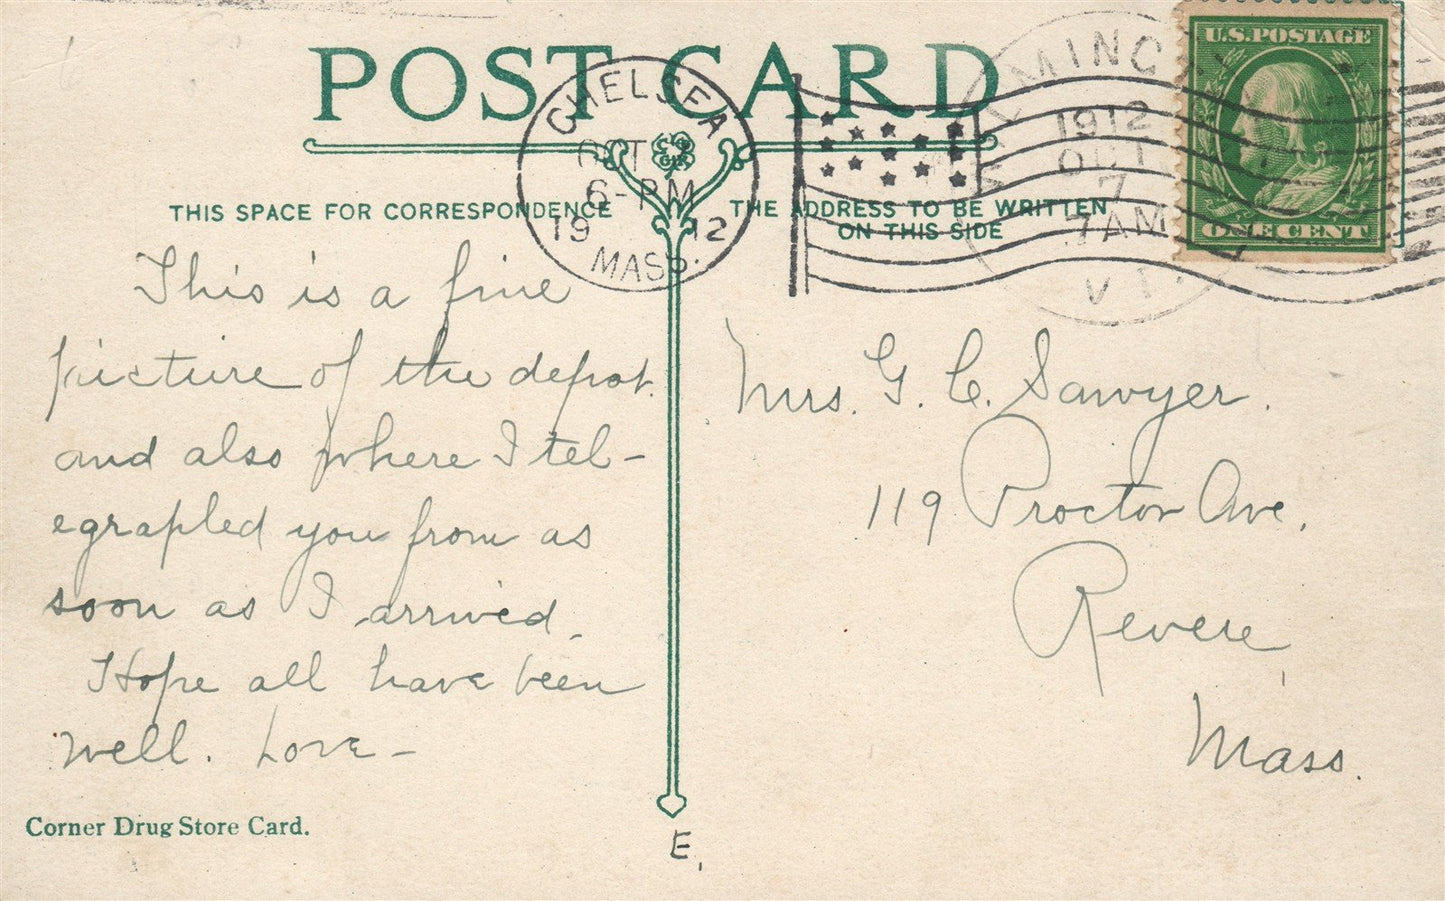 POST CARD
THIS SPACE FOR CORRESPONDENCE
THE ADDRESS TO BE WRITTEN
ON THIS SIDE
CHELSEA
OCT
6-PM
19 12
MASS.
MING
1912
OCT
7
7 AM
VT.
U.S. POSTAGE
ONE CENT
This is a fine
picture of the depot.
and also where I tel-
egrapled you from as
soon as I arrived.
Hope all have been
well. Love -
Mrs. G. C. Sawyer.
119 Proctor Ave.
Revere,
Mass.
Corner Drug Store Card.
E.